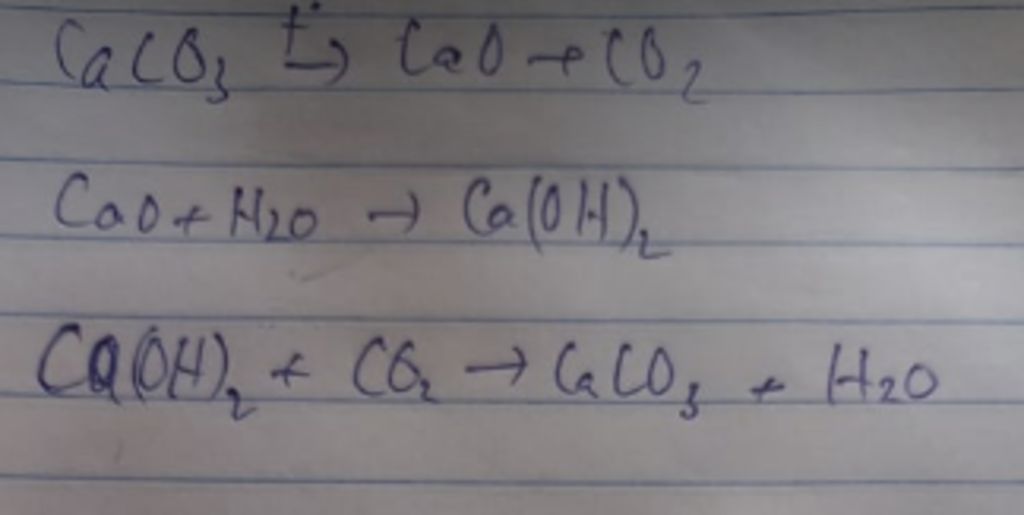 CaCO₃ t°→ CaO + CO₂
CaO + H₂O → Ca(OH)₂
Ca(OH)₂ + CO₂ → CaCO₃ + H₂O